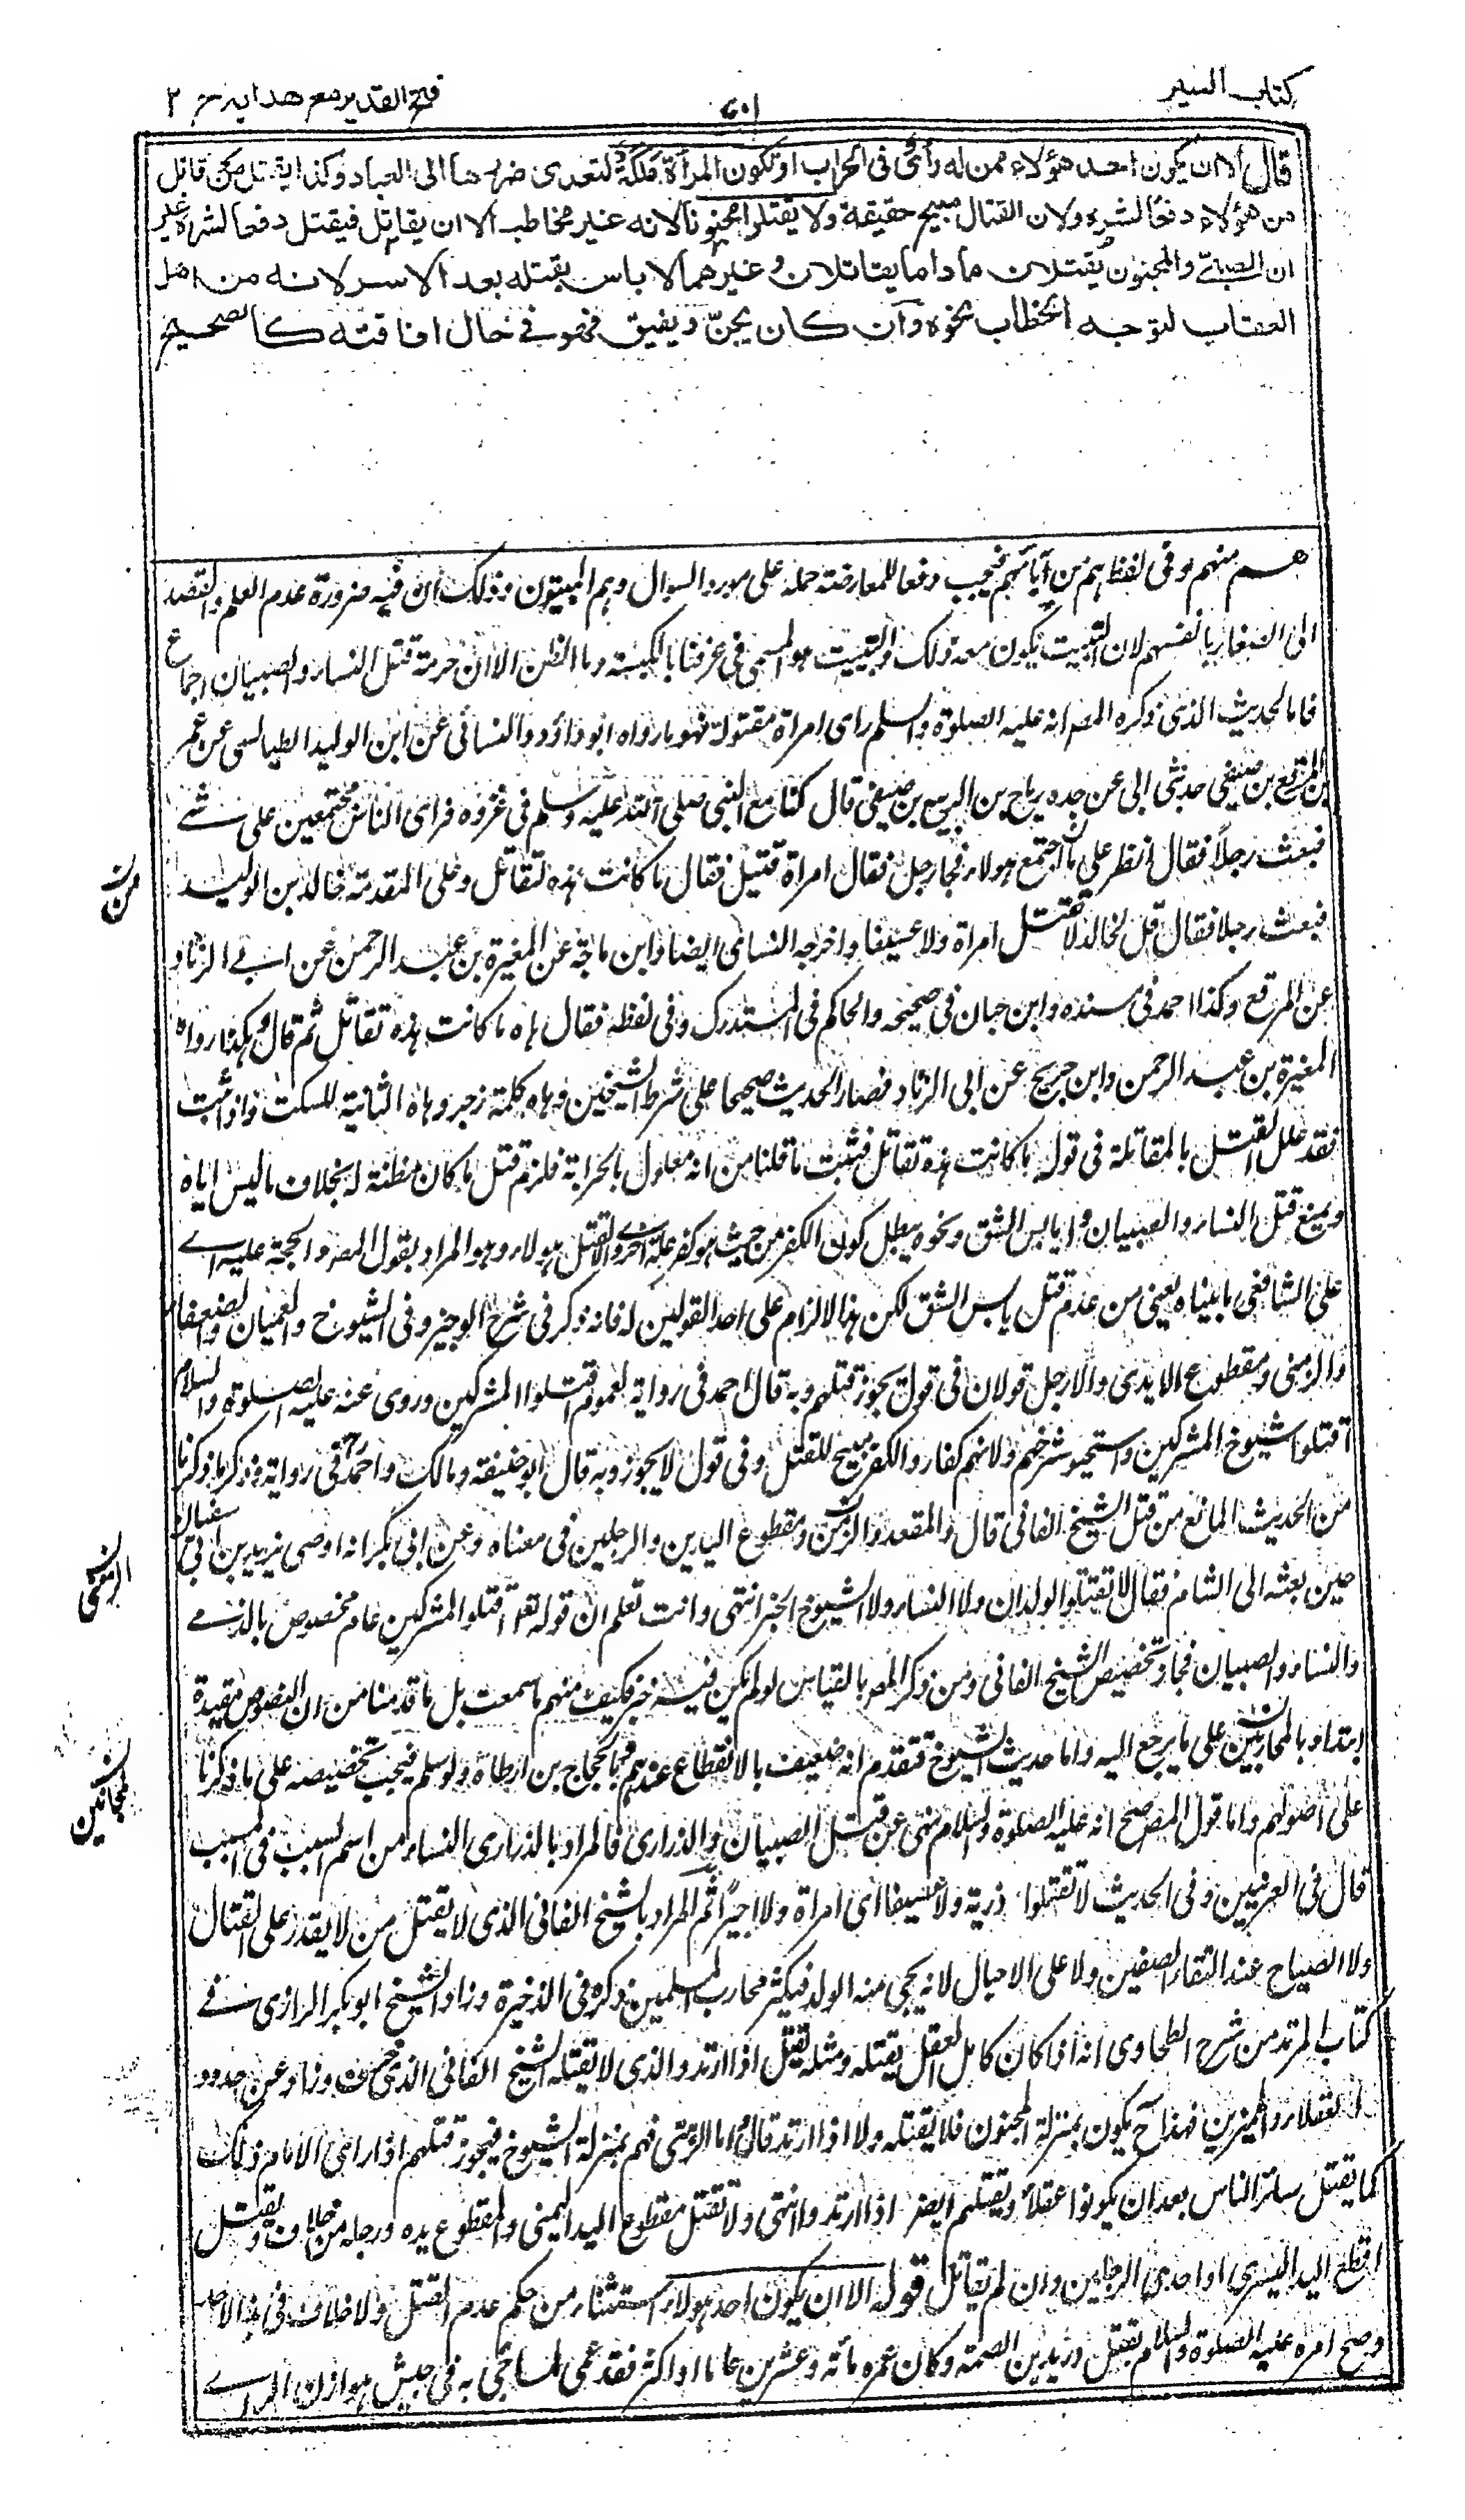 كتاب السير
٦٠١
فتح القدير مع هدايه ج ٢
قال الا ان يكون احد هؤلاء ممن له رأى فى الحراب او تكون المرأة ملكة لتعدى ضررها الى العباد وكذا يقتل من قاتل
من هؤلاء دفعا لشره ولان القتال مبيح حقيقة ولا يقتلوا مجنونا لانه غير مخاطب الا ان يقاتل فيقتل دفعا لشره غير
ان الصبى والمجنون يقتلان ما داما يقاتلان وغيرهما لا باس بقتله بعد الاسر لانه من اهل
العقاب لتوجه الخطاب نحوه وان كان يجن ويفيق فهو فى حال افاقته كالصحيح
هم منهم وفى لفظ هم من آبائهم فيجب دفعا للمعارضة حمله على مورد السوال وهم المبيتون وذلك ان فيه ضرورة عدم العلم والقصد
الى الصغار بانفسهم لان التبييت يكون معه ذلك والتبييت هو المسمى فى عرفنا بالكبسة وما الظن الا ان حرمة قتل النساء والصبيان اجماع
فاما الحديث الذى ذكره المصـ انه عليه الصلوة والسلم راى امراة مقتولة فهو ما رواه ابو داؤد والنسائى عن ابن الوليد الطيالسى عن عمر
بن المرقع بن صيفى حدثنى ابى عن جده رباح بن الربيع بن صيفى قال كنا مع النبى صلى الله عليه وسلم فى غزوه فراى الناس مجتمعين على شئ
فبعث رجلاً فقال انظر على ما اجتمع هولاء فجاء رجل فقال امراة قتيل فقال ما كانت هذه لتقاتل وعلى المقدمة خالد بن الوليد
فبعث رجلا فقال قل لخالد لا تقتل امراة ولا عسيفا واخرجه النسائى ايضا وابن ماجة عن المغيرة بن عبد الرحمن عن ابى الزناد
عن المرقع وكذا احمد فى مسنده وابن حبان فى صحيحه والحاكم فى المستدرك وفى لفظه فقال هاه ما كانت هذه تقاتل ثم قال وهكذا رواه
المغيرة بن عبد الرحمن وابن جريج عن ابى الزناد فصار الحديث صحيحا على شرط الشيخين وهاه كلمة زجر وهاه الثانية للسكت واذا ثبت
فقد علل القتل بالمقاتلة فى قوله ما كانت هذه تقاتل فثبت ما قلنا من انه معلول بالحرابة فلزم قتل ما كان مظنة له بخلاف ما ليس اياه
ويمنع قتل النساء والصبيان و يابس الشق ونحوه يبطل كون الكفر من حيث هو كفر علة اخرى والا لقتل هولاء وهو المراد بقول المصـ والحجة عليه اى
على الشافعى ما بيناه يعنى من عدم قتل يابس الشق لكن هذا الالزام على احد القولين له فانه ذكر فى شرح الوجيز وفى الشيوخ والعميان والضعفاء
والزمنى ومقطوع الايدى والارجل قولان فى قول يجوز قتلهم وبه قال احمد فى رواية لعموم اقتلوا المشركين وروى عنه عليه الصلوة والسلام
اقتلوا شيوخ المشركين واستحيوا شرخهم ولانهم كفار والكفر مبيح للقتل وفى قول لا يجوز وبه قال ابو حنيفة ومالك واحمد فى رواية وذكر ما ذكرنا
من الحديث المانع من قتل الشيخ الفانى قال والمقعد والزمن ومقطوع اليدين والرجلين فى معناه وعن ابى بكر انه اوصى يزيد بن ابى سفيان
حين بعثه الى الشام فقال لا تقتلوا الولدان ولا النساء ولا الشيوخ الخبر انتهى وانت تعلم ان قوله تعـ اقتلوا المشركين عام مخصوص بالذمى
والنساء والصبيان فجاز تخصيص الشيخ الفانى ومن ذكر المصـ بالقياس لو لم يكن فيه خبر فكيف منهم ما سمعت بل ما قدمنا من ان النصوص مقيدة
ابتداء بالمحاربين على ما يرجع اليه واما حديث الشيوخ فتقدم انه ضعيف بالانقطاع عندهم وبالحجاج بن ارطاة ولو سلم فيجب تخصيصه على ما ذكرنا
على اصولهم واما قول المصـ صح انه عليه الصلوة والسلام نهى عن قتل الصبيان والذرارى فالمراد بالذرارى النساء من اسم السبب فى المسبب
قال فى الغريبين وفى الحديث لا تقتلوا ذرية ولا عسيفا اى امراة ولا اجيرا ثم المراد بالشيخ الفانى الذى لا يقتل من لا يقدر على القتال
ولا الصياح عند التقاء الصفين ولا على الاحبال لانه يجئ منه الولد فيكثر محارب المسلمين ذكره فى الذخيرة وزاد الشيخ ابو بكر الرازى فى
كتاب المرتد من شرح الطحاوى انه اذا كان كامل العقل يقتله ومثله يقتل اذا ارتد والذى لا يقتله الشيخ الفانى الذى خرف وزاد عن حدود
العقلاء والمميزين فهذا ح يكون بمنزلة المجنون فلا يقتله ولا اذا ارتد قال واما الزمنى فهم بمنزلة الشيوخ فيجوز قتلهم اذا راى الامام ذلك
كما يقتل سائر الناس بعد ان يكونوا عقلاء ويقتلهم ايضـ اذا ارتدوا انتهى ولا تقتل مقطوع اليد اليمنى والمقطوع يده ورجله من خلاف ويقتل
اقطع اليد اليسرى او احدى الرجلين وان لم يقاتل قوله الا ان يكون احد هولاء استثناء من حكم عدم القتل ولا خلاف فى هذا لاحد
وصح امره عليه الصلوة والسلام بقتل دريد بن الصمة وكان عمره مائه وعشرين عاما او اكثر فقد عمى لما جئ به فى جيش هوازن للراى
الزمنى